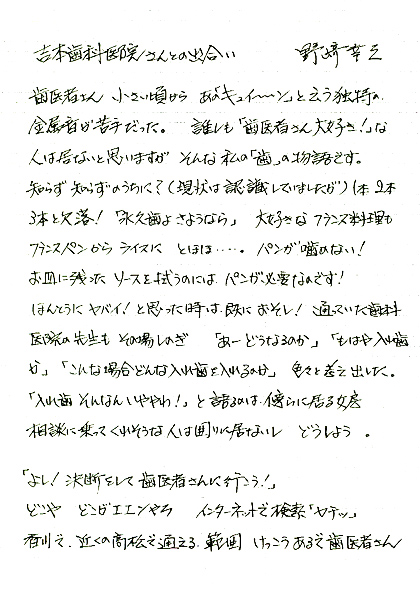 吉本歯科医院さんとの出合い 野崎幸三
歯医者さん 小さい頃から あの「キュイーーン」と云う独特の
金属音が苦手だった。 誰しも「歯医者さん大好き!」な
人は居ないと思いますが そんな私の「歯」の物語です。
知らず知らずのうちに?(現状は認識していましたが)1本 2本
3本と欠落!「永久歯よさようなら」 大好きなフランス料理も
フランスパンから ライスに とほほ・・・・・。パンが噛めない!
お皿に残った ソースを拭うのには パンが必要なのです!
ほんとうに ヤバイ!と思った時は 既に おそし! 通っていた歯科
医院の先生も その場しのぎ 「あーどうなるのか」「もはや入れ歯
か」「こんな場合どんな入れ歯を入れるのか」色々と考え出した。
「入れ歯 そんなん いややわ!」と 語るのは 傍らに居る女房
相談に乗ってくれそうな人は 周りに居ないし どうしよう 。
「よし! 決断をして 歯医者さんに行こう!」
どこや どこがエエンやろ インターネットで検索「カチッ」
香川で、近くの高松で通える範囲 けっこうあるぞ歯医者さん